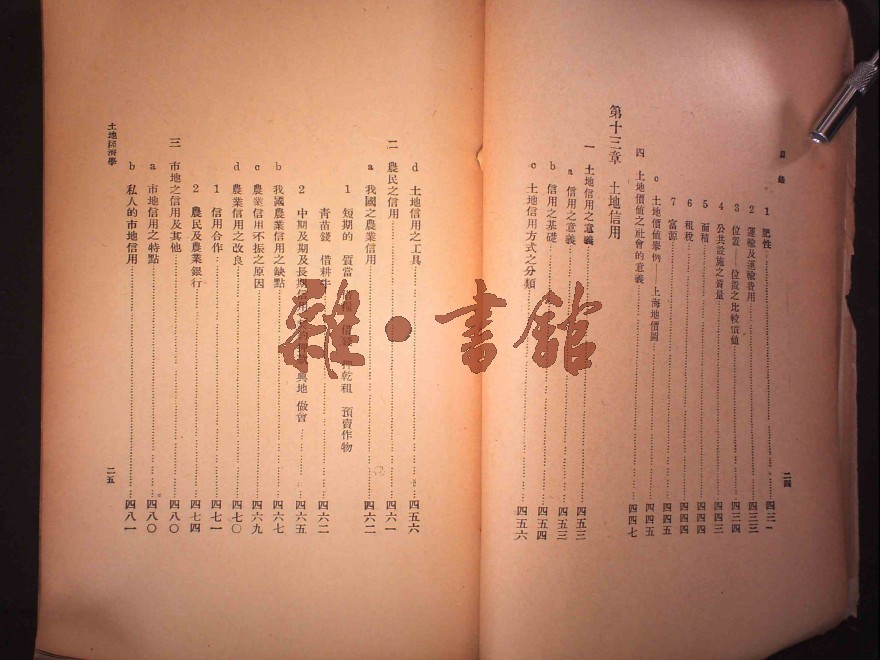 目錄
1 肥性
2 運輸及運輸費用 四三三
3 位置——位置之比較價值 四三四
4 公共設施之質量 四四三
5 面積 四四四
6 租稅 四四四
7 富源 四四五
c 土地價值舉例——上海地價圖 四四五
四 土地價值之社會的意義 四四七
第十三章 土地信用
一 土地信用之意義 四五三
a 信用之意義 四五三
b 信用之基礎 四五四
c 土地信用方式之分類 四五六
二四
d 土地信用之工具 四五六
二 農民之信用 四六一
a 我國之農業信用 四六二
1 短期的 質當 押乾租 預賣作物
青苗錢 借耕牛 四六二
2 中期及期及長期信用 典地 做會 四六五
b 我國農業信用之缺點 四六七
c 農業信用不振之原因 四六九
d 農業信用之改良 四七〇
1 信用合作 四七一
2 農民及農業銀行 四七四
三 市地之信用及其他 四八〇
a 市地信用之特點 四八〇
b 私人的市地信用 四八一
土地經濟學
二五
雜·書館